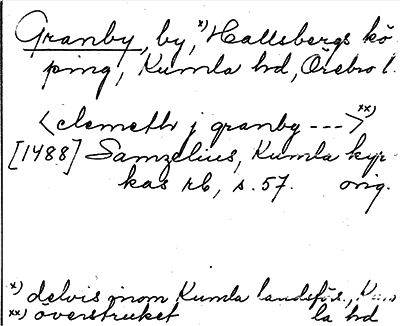 Granby, by, x) Hallsbergs kö
ping, Kumla hd, Örebro l.
<clemeth j granby ---> xx)
[1488] Samzelius, Kumla kyr
kas rb, s. 57. orig.
x) delvis inom Kumla landsförs., Kum
xx) överstruket la hd